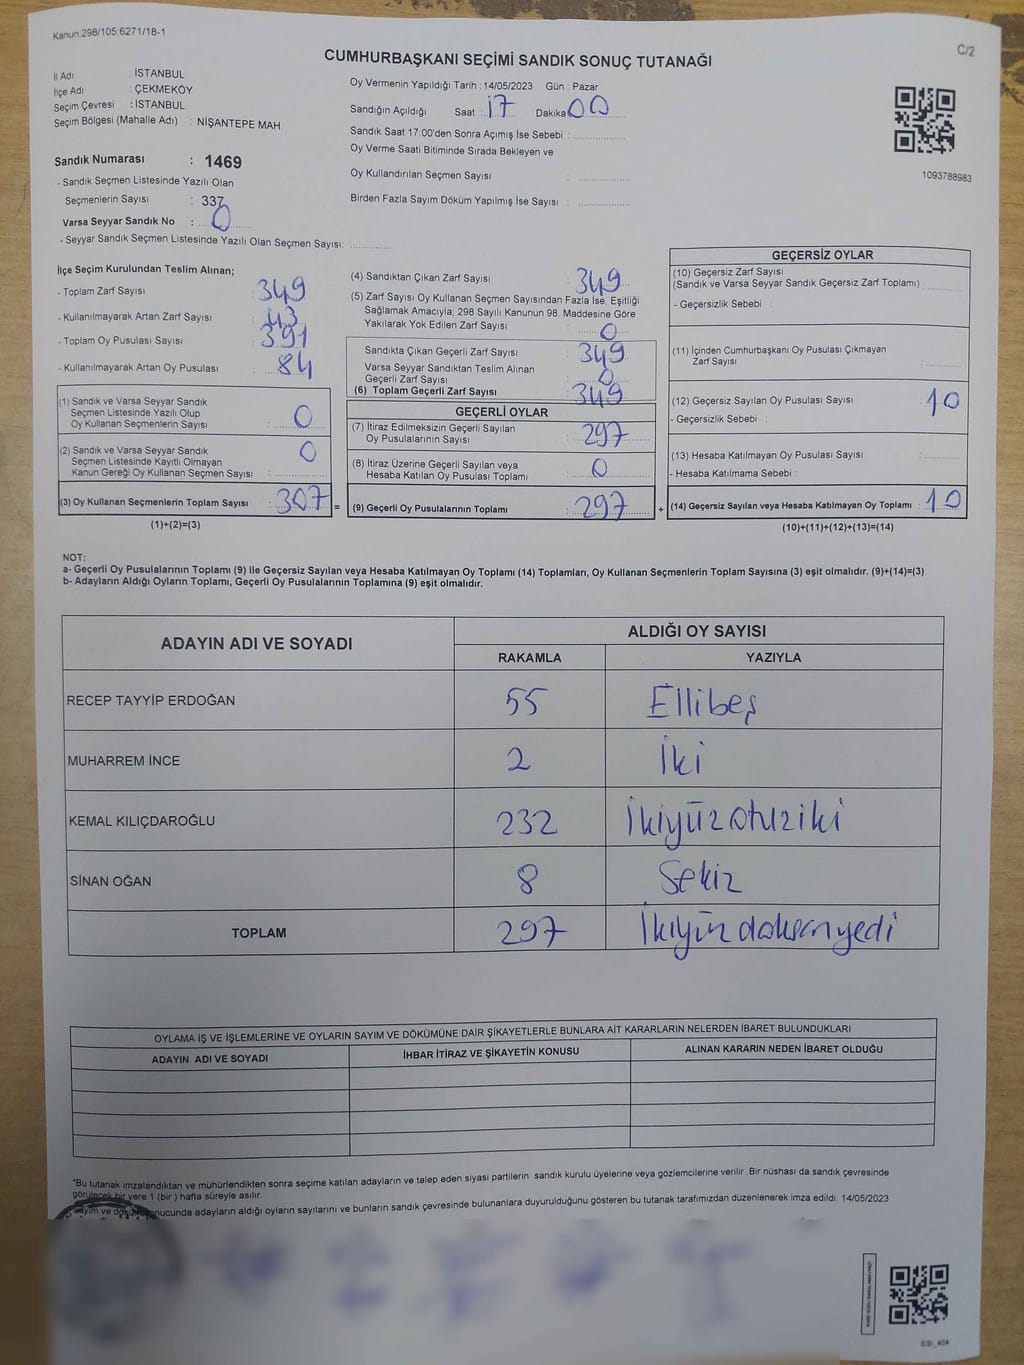 Kanun.298/105;6271/18-1
C/2
CUMHURBAŞKANI SEÇİMİ SANDIK SONUÇ TUTANAĞI
İl Adı : İSTANBUL
İlçe Adı : ÇEKMEKÖY
Seçim Çevresi : İSTANBUL
Seçim Bölgesi (Mahalle Adı) : NİŞANTEPE MAH.
Sandık Numarası : 1469
- Sandık Seçmen Listesinde Yazılı Olan
Seçmenlerin Sayısı : 337
Varsa Seyyar Sandık No : 0
- Seyyar Sandık Seçmen Listesinde Yazılı Olan Seçmen Sayısı:
Oy Vermenin Yapıldığı Tarih : 14/05/2023 Gün : Pazar
Sandığın Açıldığı Saat : 17 Dakika 00
Sandık Saat 17:00'den Sonra Açımış İse Sebebi :
Oy Verme Saati Bitiminde Sırada Bekleyen ve
Oy Kullandırılan Seçmen Sayısı :
Birden Fazla Sayım Döküm Yapılmış İse Sayısı :
1093788983
İlçe Seçim Kurulundan Teslim Alınan;
- Toplam Zarf Sayısı : 349
- Kullanılmayarak Artan Zarf Sayısı : 43
- Toplam Oy Pusulası Sayısı : 391
- Kullanılmayarak Artan Oy Pusulası : 84
(1) Sandık ve Varsa Seyyar Sandık
Seçmen Listesinde Yazılı Olup
Oy Kullanan Seçmenlerin Sayısı : 0
(2) Sandık ve Varsa Seyyar Sandık
Seçmen Listesinde Kayıtlı Olmayan
Kanun Gereği Oy Kullanan Seçmen Sayısı : 0
(3) Oy Kullanan Seçmenlerin Toplam Sayısı : 307 =
(1)+(2)=(3)
(4) Sandıktan Çıkan Zarf Sayısı : 349
(5) Zarf Sayısı Oy Kullanan Seçmen Sayısından Fazla İse, Eşitliği
Sağlamak Amacıyla; 298 Sayılı Kanunun 98. Maddesine Göre
Yakılarak Yok Edilen Zarf Sayısı : 0
Sandıkta Çıkan Geçerli Zarf Sayısı : 349
Varsa Seyyar Sandıktan Teslim Alınan
Geçerli Zarf Sayısı : 0
(6) Toplam Geçerli Zarf Sayısı : 349
GEÇERLİ OYLAR
(7) İtiraz Edilmeksizin Geçerli Sayılan
Oy Pusulalarının Sayısı : 297
(8) İtiraz Üzerine Geçerli Sayılan veya
Hesaba Katılan Oy Pusulası Toplamı : 0
(9) Geçerli Oy Pusulalarının Toplamı : 297 +
GEÇERSİZ OYLAR
(10) Geçersiz Zarf Sayısı
(Sandık ve Varsa Seyyar Sandık Geçersiz Zarf Toplamı) :
- Geçersizlik Sebebi :
(11) İçinden Cumhurbaşkanı Oy Pusulası Çıkmayan
Zarf Sayısı :
(12) Geçersiz Sayılan Oy Pusulası Sayısı : 10
- Geçersizlik Sebebi :
(13) Hesaba Katılmayan Oy Pusulası Sayısı :
- Hesaba Katılmama Sebebi :
(14) Geçersiz Sayılan veya Hesaba Katılmayan Oy Toplamı : 10
(10)+(11)+(12)+(13)=(14)
NOT:
a- Geçerli Oy Pusulalarının Toplamı (9) ile Geçersiz Sayılan veya Hesaba Katılmayan Oy Toplamı (14) Toplamları, Oy Kullanan Seçmenlerin Toplam Sayısına (3) eşit olmalıdır. (9)+(14)=(3)
b- Adayların Aldığı Oyların Toplamı, Geçerli Oy Pusulalarının Toplamına (9) eşit olmalıdır.
ADAYIN ADI VE SOYADI ALDIĞI OY SAYISI
RAKAMLA YAZIYLA
RECEP TAYYİP ERDOĞAN 55 Ellibeş
MUHARREM İNCE 2 İki
KEMAL KILIÇDAROĞLU 232 İkiyüzotuziki
SİNAN OĞAN 8 Sekiz
TOPLAM 297 İkiyüzdoksanyedi
OYLAMA İŞ VE İŞLEMLERİNE VE OYLARIN SAYIM VE DÖKÜMÜNE DAİR ŞİKAYETLERLE BUNLARA AİT KARARLARIN NELERDEN İBARET BULUNDUKLARI
ADAYIN ADI VE SOYADI İHBAR İTİRAZ VE ŞİKAYETİN KONUSU ALINAN KARARIN NEDEN İBARET OLDUĞU
*Bu tutanak imzalandıktan ve mühürlendikten sonra seçime katılan adayların ve talep eden siyasi partilerin sandık kurulu üyelerine veya gözlemcilerine verilir .Bir nüshası da sandık çevresinde
görülecek bir yere 1 (bir ) hafta süreyle asılır.
Sayım ve döküm sonucunda adayların aldığı oyların sayılarını ve bunların sandık çevresinde bulunanlara duyurulduğunu gösteren bu tutanak tarafımızdan düzenlenerek imza edildi. 14/05/2023